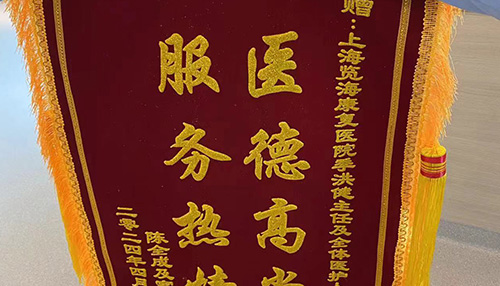 赠:上海览海康复医院季洪健主任及全体医护
医德高尚
服务热情
陈全成及家
二零二四年四月